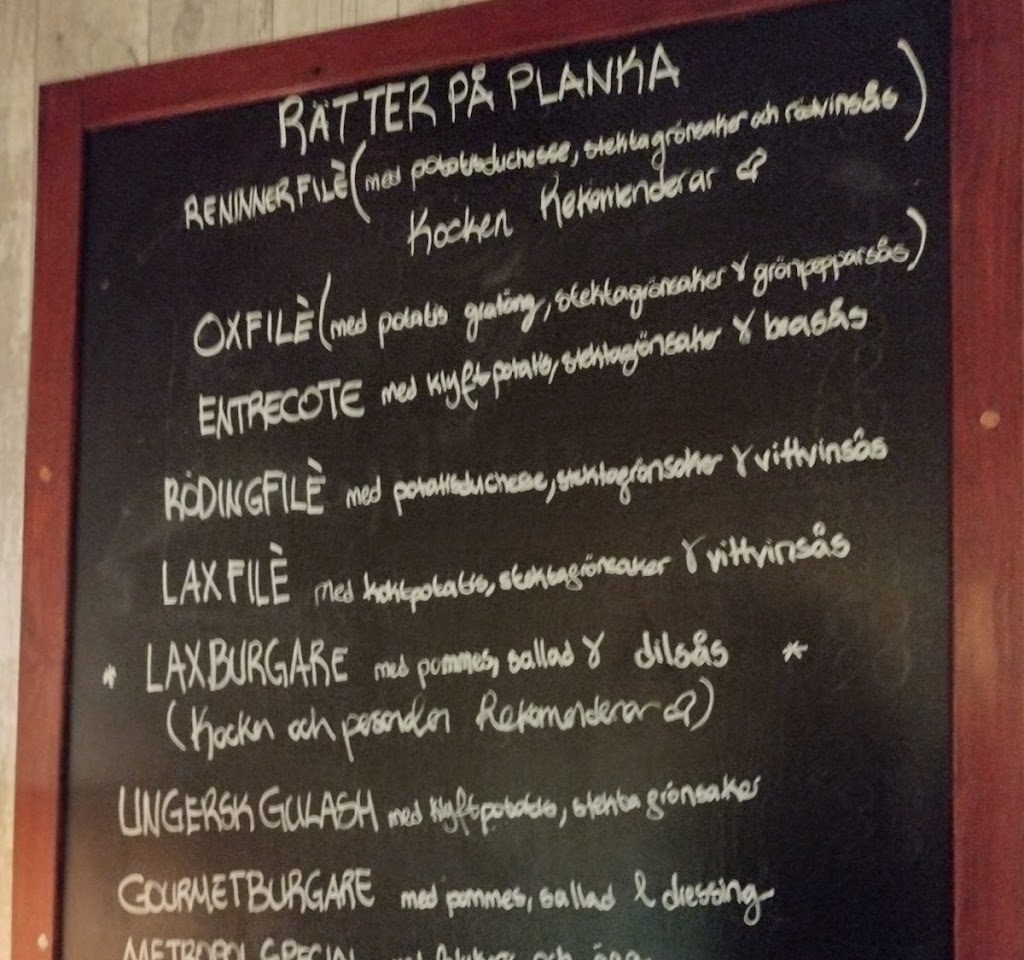 RÄTTER PÅ PLANKA
RENINNERFILÈ (med potatisduchesse, stektagrönsaker och rödvinsås)
Kocken Rekomenderar
OXFILÈ (med potatis grating, stektagrönsaker & grönpepparsås)
ENTRECOTE med klyftpotatis, stektagrönsaker & beasås
RÖDINGFILÈ med potatisduchesse, stektagrönsaker & vittvinsås
LAXFILÈ med koktpotatis, stektagrönsaker & vittvinsås
* LAXBURGARE med pommes, sallad & dilsås *
(Kocken och personalen Rekomenderar)
UNGERSK GULASH med klyftpotatis, stekta grönsaker
GOURMETBURGARE med pommes, sallad & dressing
METROPOL SPECIAL med och